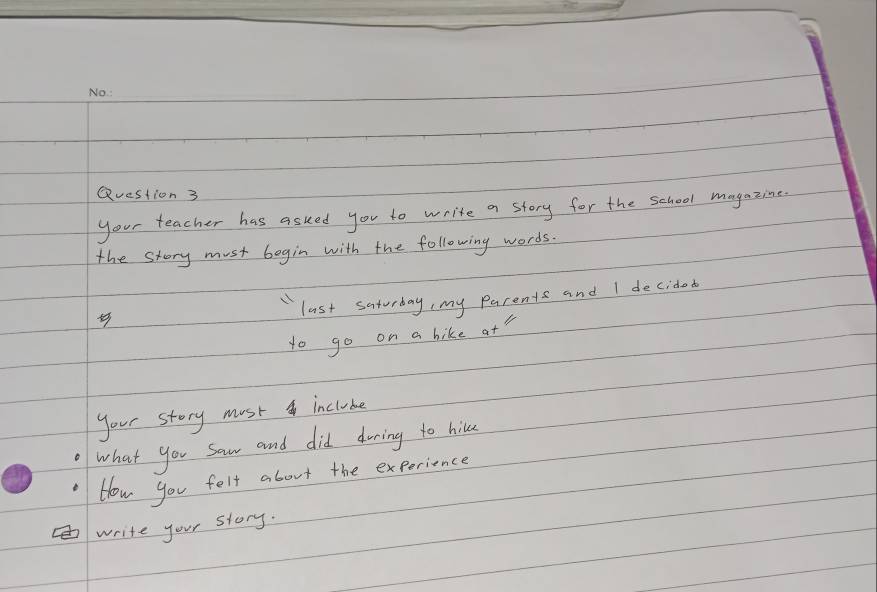 No.:
Question 3
your teacher has asked you to write a story for the school magazine.
the story must begin with the following words.
"last saturday, my parents and I decided
to go on a hike at"
your story must include
• what you saw and did during to hike
• How you felt about the experience
write your story.